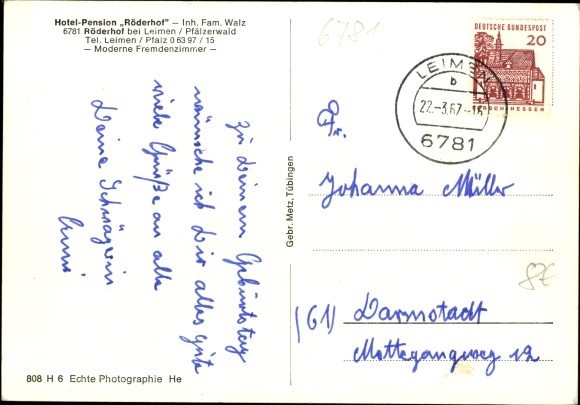 Hotel-Pension „Röderhof" — Inh. Fam. Walz
6781 Röderhof bei Leimen / Pfälzerwald
Tel. Leimen / Pfalz 0 63 97 / 15
— Moderne Fremdenzimmer —
6781
DEUTSCHE BUNDESPOST
20
LORSCH/HESSEN
LEIMEN
b
22.-3.67.-16
6781
Zu Deinem Geburtstag
wünsche ich Dir alles Gute
viele Grüße an alle
Deine Schwägerin
Anni
Gebr. Metz, Tübingen
Fr.
Johanna Müller
8€
(61) Darmstadt
Mottegangweg 12
808 H 6 Echte Photographie He